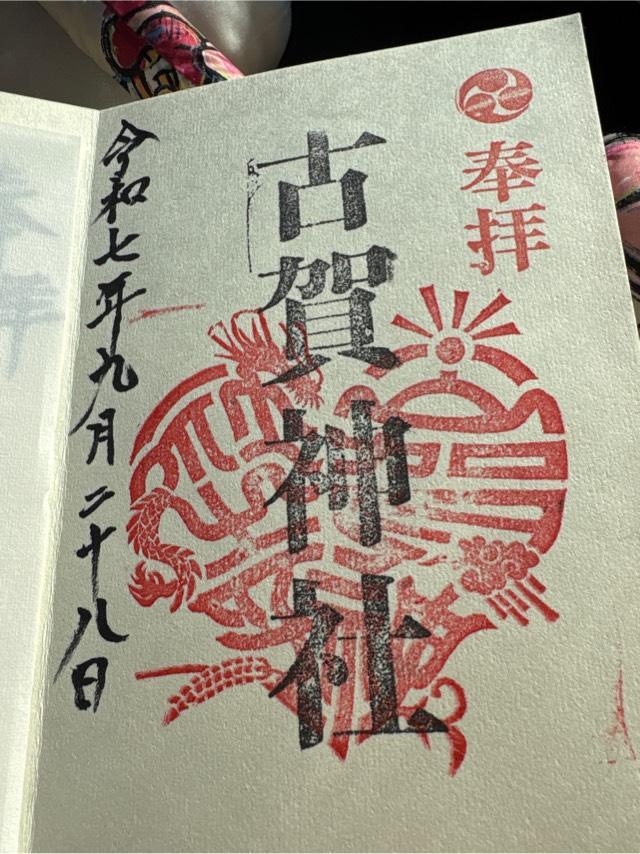 奉拝
古賀神社
令和七年九月二十八日